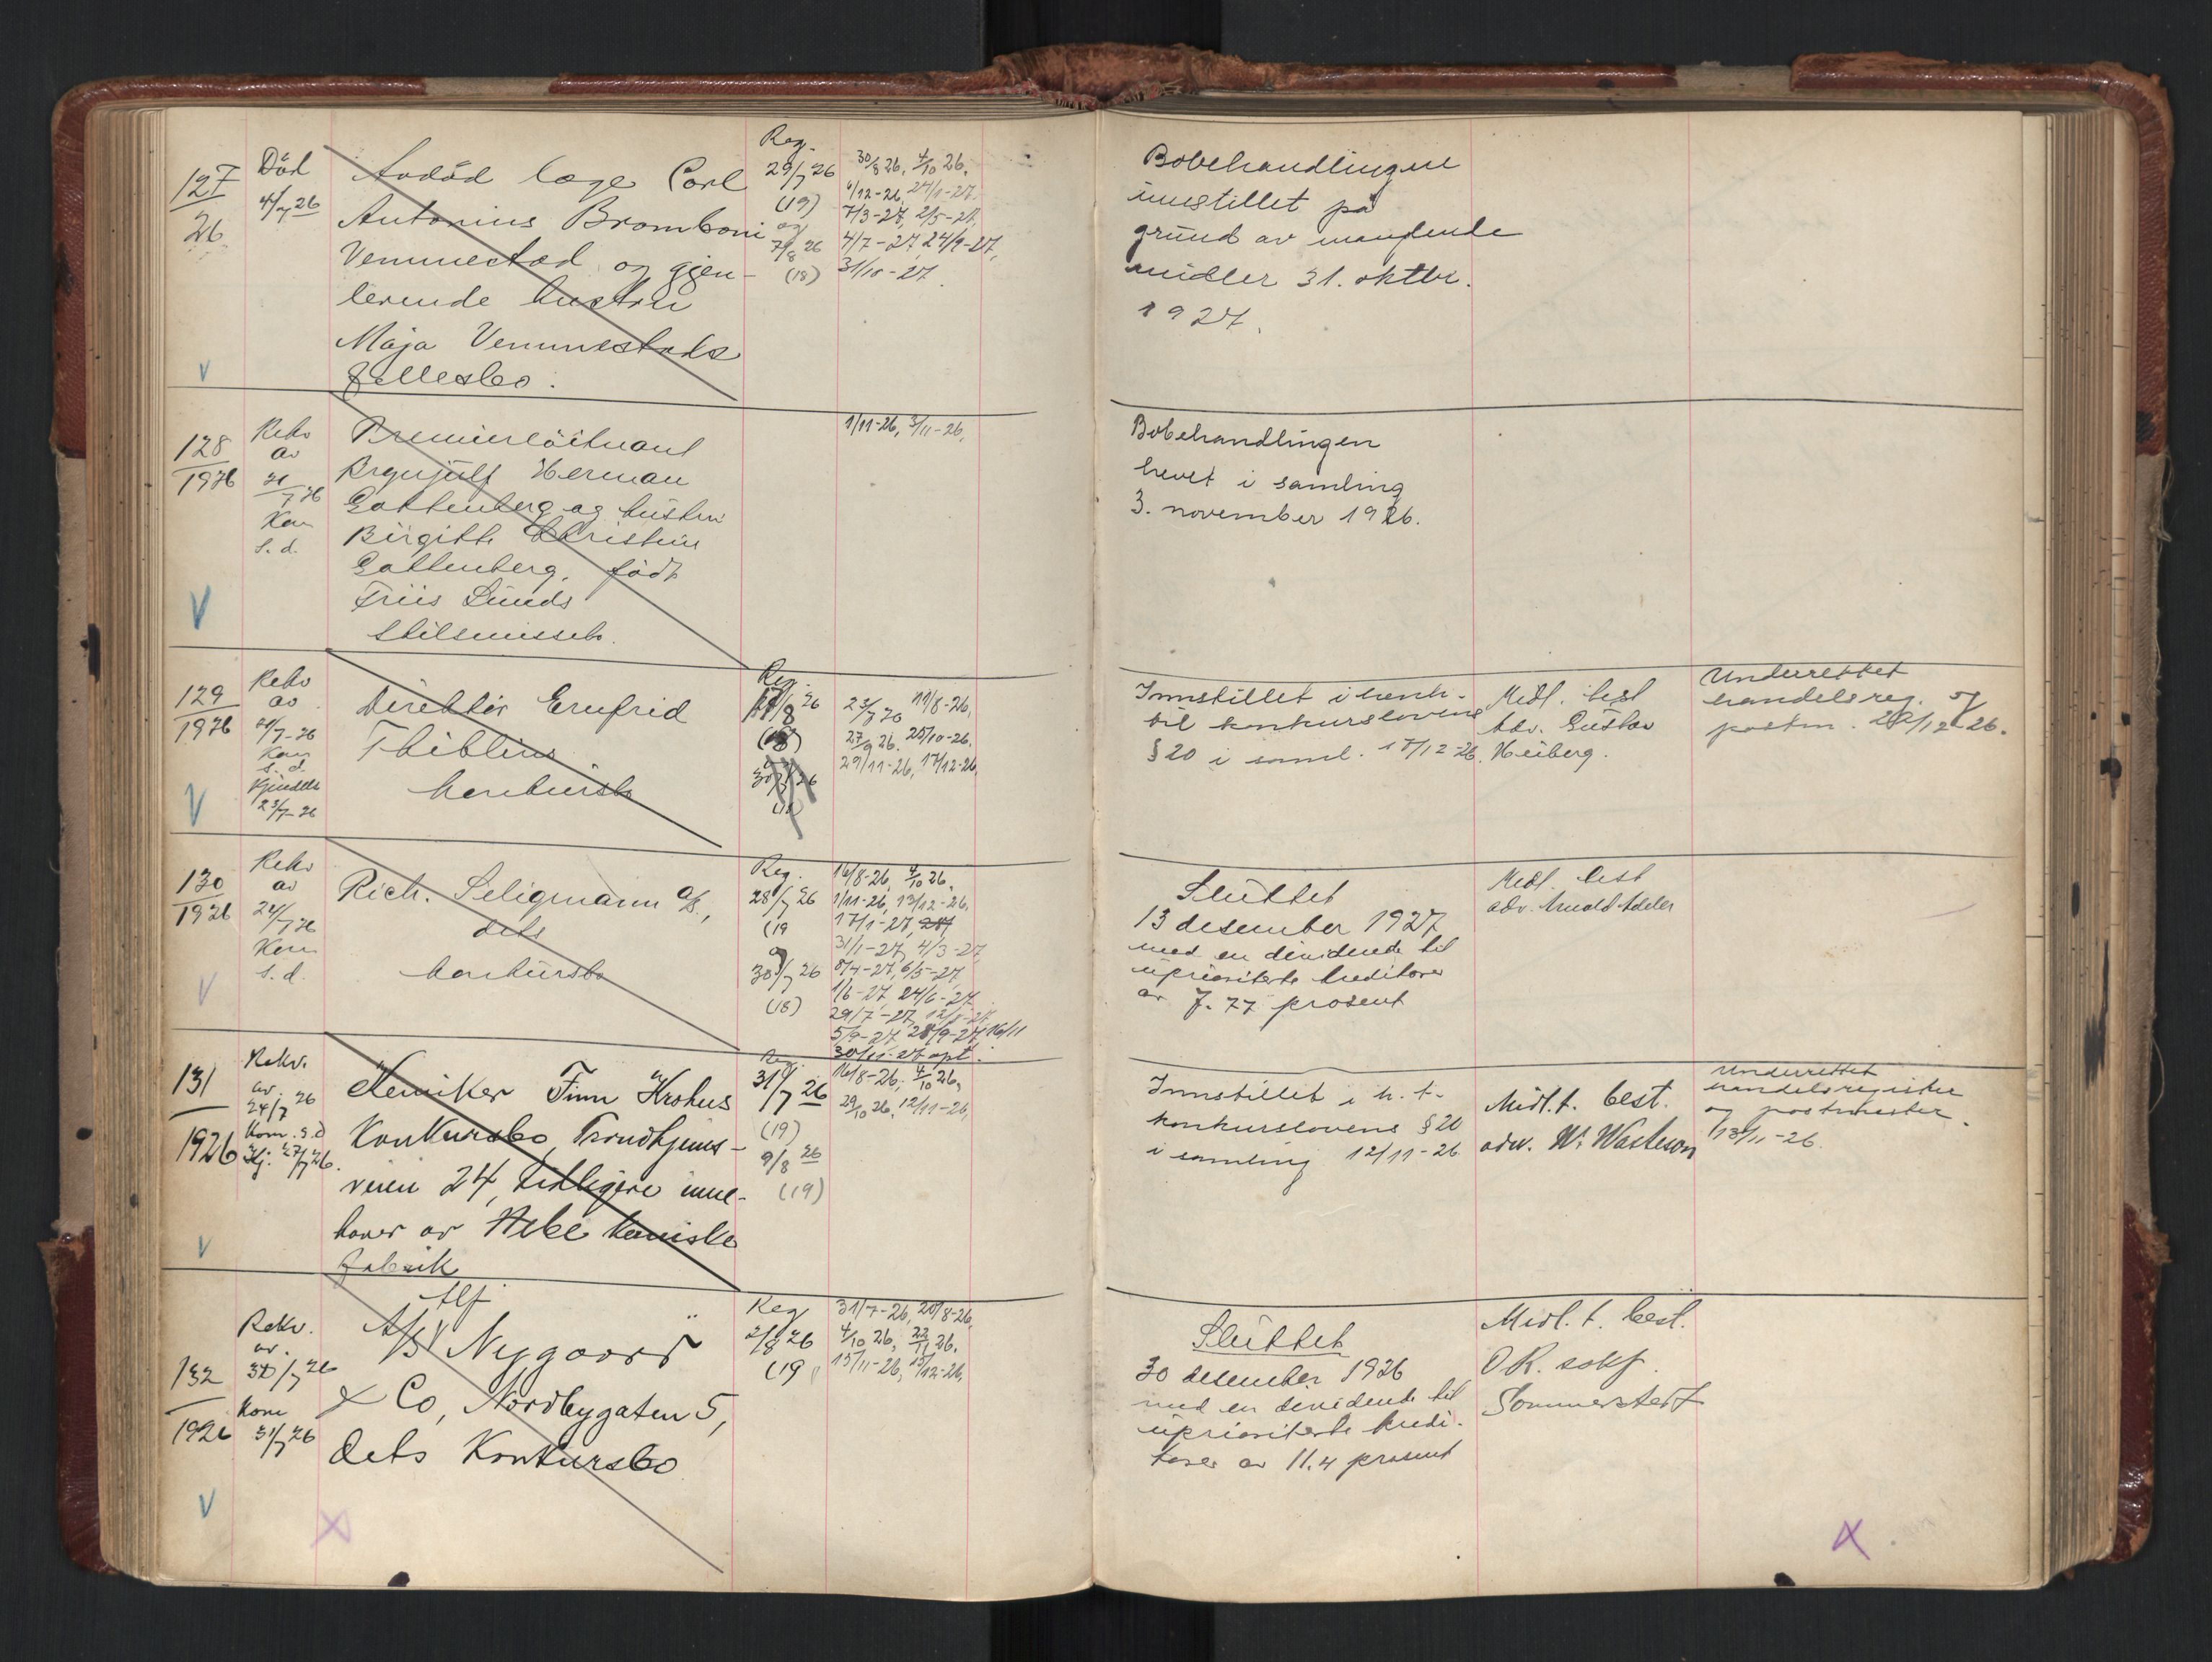 127
26
Död
4/7 26
Avdöd læge Carl
Antonius Bromboni
Vemmestad og gjen-
levende hustru
Maja Vemmestads
fellesbo.
Reg.
29/7 26
(19)
og
7/8 26
(18)
30/8 26, 4/10 26,
6/12-26, 24/1-27.
7/3-27, 2/5-27,
4/7-27, 24/9-27,
31/10-27.
Bobehandlingen
innstillet på
grund av manglende
midler 31. oktbr.
1927.
V
128
1926
Rekv
av
7 26
Kon
s. d.
Premierløitnant
Brynjulf Herman
Gottenberg og hustru
Birgitte Christine
Gottenberg, født
Friis Lunds
1/11-26, 3/11-26,
Bobehandlingen
hevet i samling
3. november 1926.
V
129
1926
Rekv
av
/7-26
Kon
s. d.
Kjendels
23/7-26
Direktør Ernfrid
Thiblins
konkursbo
Reg.
/8 26
(18)
30/7 26
(18)
11/8-26,
27/9 26. 25/10-26.
29/11-26, 17/12-26,
Innstillet i henh.
til konkurslovens
§ 20 i saml. 17/12-26.
Midl. best
Adv. Gustav
Heiberg.
Underrettet
handelsreg. og
postm. 22/12-26.
V
130
1926
Rekv
av
24/7 26
Kon
s. d.
Rich. Seligmann A/S,
dets
konkursbo
Reg.
28/7 26
(19
og
30/7 26
(18)
16/8-26, 4/10 26,
1/11-26, 13/12-26.
17/1-27,
31/1-27, 4/3-27,
8/4-27, 6/5-27,
1/6-27, 24/6-27,
29/7-27, 12/8-27,
5/9-27, 28/9-27, 16/11
30/11-27 opt.
Sluttet
13 desember 1927
med en dividende til
uprioriterte kreditorer
av 7.77 prosent
Midl. best
adv. Arnold Adeler
V
131
1926
Rekv.
av. 26
24/7
Kon. s.d
Kj. 27/7 26.
Kemiker Finn Krohus
Konkursbo, Trondhjems-
veien 24, tidligere inne-
haver av Hebe kemiske
fabrik
Reg.
31/7 26
(19)
9/8 26
(19)
16/8-26, 4/10 26,
29/10 26, 12/11-26,
Innstillet i h. t.
konkurslovens § 20
i samling 12/11-26
Midl. t. best.
adv. W. Wasteson
Underrettet
handelsregister
og postmester.
13/11-26.
V
132
1926
Rekv.
av.
30/7 26
Kon
31/7 26
Alf
A/S Nygaard
& Co, Nordbygaten 5,
dets Konkursbo
Reg
2/8 26
(19
31/7-26, 20/8-26,
4/10 26, 22/11 26.
15/11-26, 15/12-26,
Sluttet
30 desember 1926
med en dividende til
uprioriterte kredi-
torer av 11.4 prosent
Midl. t. best.
O.R. sakf.
Sommerstedt
V
X
X